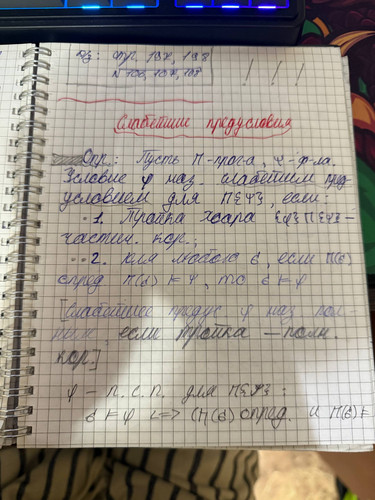 дз: стр. 197, 198
N 106, 107, 108
! ! !
Слабейшие предусловия
Опр.: Пусть П-прога, ψ-ф-ла.
Условие φ наз. слабейшим пред-
условием для П{ψ}, если:
1. Тройка Хоара {φ}П{ψ} -
частич. кор.;
2. Для любого σ, если П(σ)
опред П(σ) ⊨ ψ, то σ ⊨ φ
[Слабейшее предус φ наз. пол-
ным, если тройка — полн.
кор.]
φ - п. с. п. для П{ψ}:
σ ⊨ φ <=> (П(σ) опред. и П(σ) ⊨